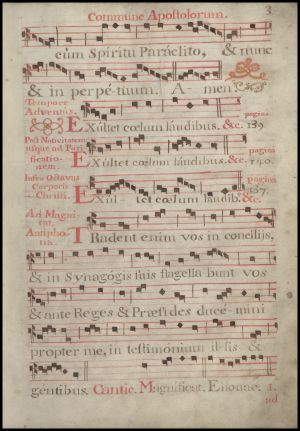 Commune Apostolorum.
3
cum Spiritu Paraclito, & nunc
& in perpétuum. A- men
Tempore
Adventus.
Exúltet cœlum láudibus. &c. 139.
pagina
Post Nativitatem
usque ad Puri-
ficatio-
nem.
Exúltet cœlum láudibus. &c. 140.
pagina
Infra Octavas
Corporis
Christi.
Exul- tet cœlum laudib. &c.
pagina
137.
Ad Magni-
cat.
Antipho-
na.
Tradent enim vos in concilijs,
& in Synagógis suis flagellabunt vos
& ante Reges & Præsides ducé-mini
propter me, in testimónium illis &
géntibus. Cantic. Magníficat. Euouae. 1.
ad